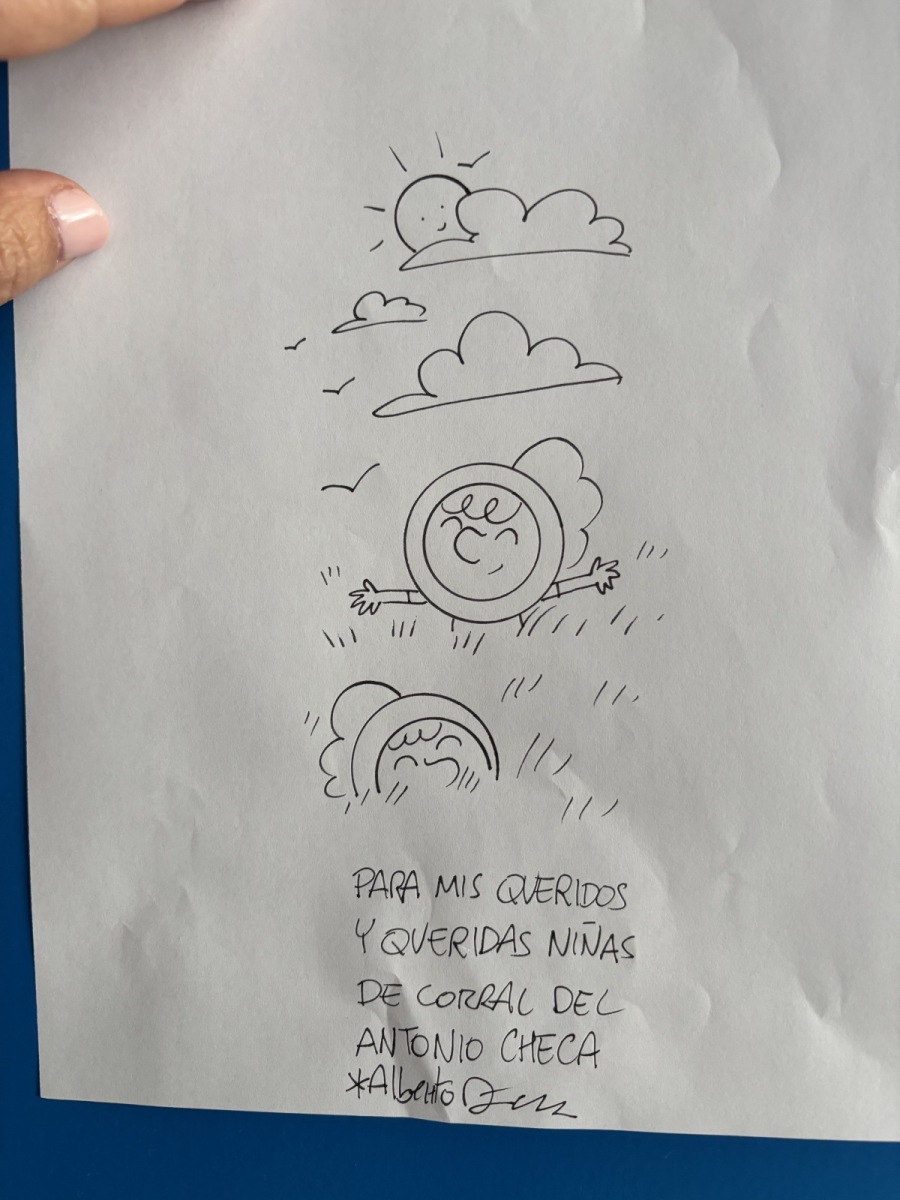 PARA MIS QUERIDOS
Y QUERIDAS NIÑAS
DE CORRAL DEL
ANTONIO CHECA
*Alberto